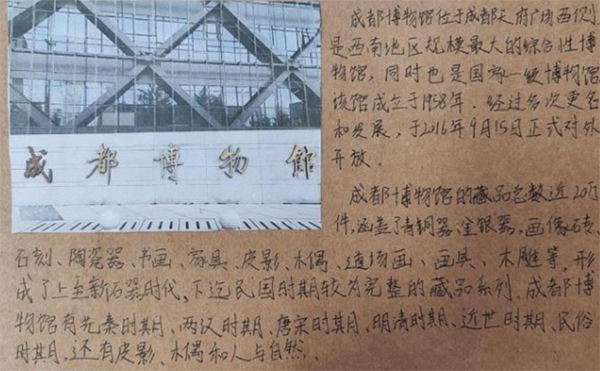 成都博物館
成都博物馆位于成都天府广场西侧,
是西南地区规模最大的综合性博
物馆,同时也是国家一级博物馆
该馆成立于1958年.经过多次更名
和发展,于2016年9月15日正式对外
开放.
成都博物馆的藏品总数近20万
件,涵盖了青铜器、金银器、画像石砖、
石刻、陶瓷器、书画、家具、皮影、木偶、道场画、画具、木雕等,形
成了上至新石器时代,下迄民国时期较为完整的藏品系列.成都博
物馆有先秦时期、两汉时期、唐宋时期、明清时期、近世时期、民俗
时期,还有皮影、木偶和人与自然.